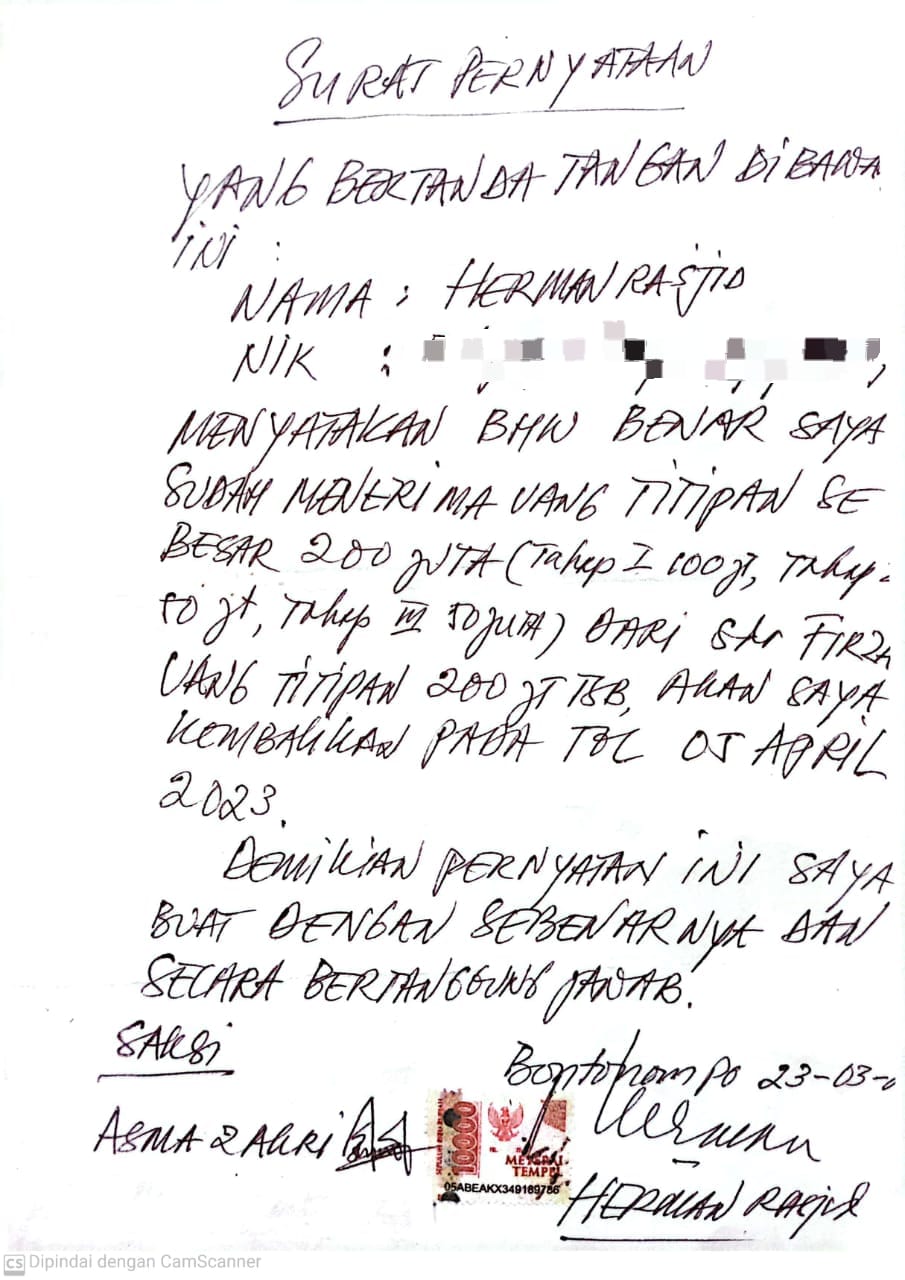 SURAT PERNYATAAN
YANG BERTANDA TANGAN DIBAWA
INI :
NAMA : HERMAN RASJID
NIK :
MENYATAKAN BHW BENAR SAYA
SUDAH MENERIMA UANG TITIPAN SE
BESAR 200 JUTA (Tahap I 100 jt, Tahap
50 jt, Tahap III 50 JUTA) DARI Sdr FIRZA
UANG TITIPAN 200 JT TSB, AKAN SAYA
KEMBALIKAN PADA TGL 05 APRIL
2023.
DEMIKIAN PERNYATAN INI SAYA
BUAT DENGAN SEBENARNYA DAN
SECARA BERTANGGUNG JAWAB.
SAKSI
Bontorampo 23-03-
ASMA ZAHRI
10000
METERAI
TEMPEL
05ABEAKX349189786
HERMAN RASJID
CS Dipindai dengan CamScanner